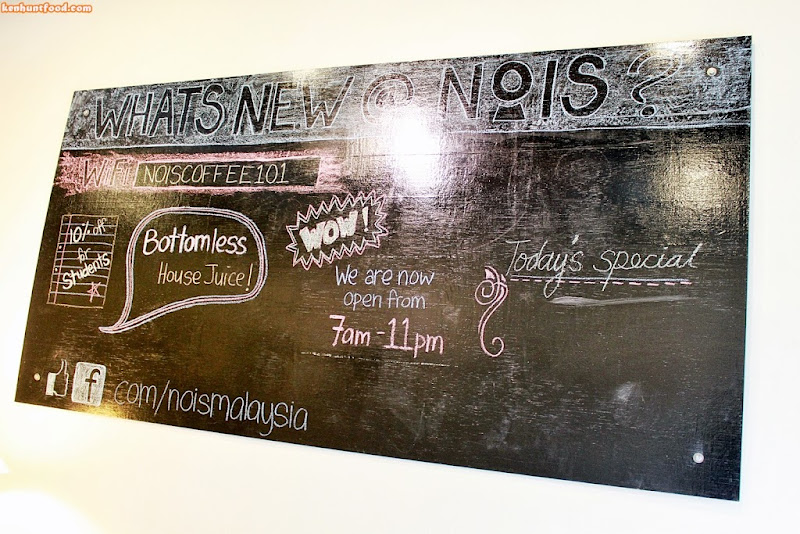 kenhuntfood.com
WHATS NEW @ NOIS ?
WiFi NOISCOFFEE101
10% off
for
Students
Bottomless
House Juice!
WOW!
We are now
open from
7am - 11pm
Today's special
f .com/noismalaysia